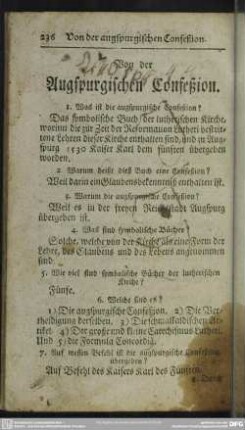 236 Von der augspurgischen Confeßion.
Von der
Augspurgischen Confeßion.
1. Was ist die augspurgische Confeßion?
Das symbolische Buch der lutherischen Kirche,
worinn die zur Zeit der Reformation Lutheri bestrit-
tene Lehren dieser Kirche enthalten sind, und in Augs-
purg 1530 Kaiser Karl dem fünften übergeben
worden.
2. Warum heißt dieß Buch eine Confeßion?
Weil darin ein Glaubensbekenntniß enthalten ist.
3. Warum die augspurgische Confeßion?
Weil es in der freyen Reichsstadt Augspurg
übergeben ist.
4. Was sind symbolische Bücher?
Solche, welche von der Kirche als eine Form der
Lehre, des Glaubens und des Lebens angenommen
sind.
5. Wie viel sind symbolische Bücher der lutherischen
Kirche?
Fünfe.
6. Welche sind es?
1) Die augspurgische Confeßion. 2) Die Ver-
theidigung derselben. 3) Die schmalkaldischen Ar-
tikel. 4) Der große und kleine Catechismus Lutheri.
Und 5) die Formula Concordiä.
7. Auf wessen Befehl ist die augspurgische Confeßion
übergeben?
Auf Befehl des Kaisers Karl des Fünften.